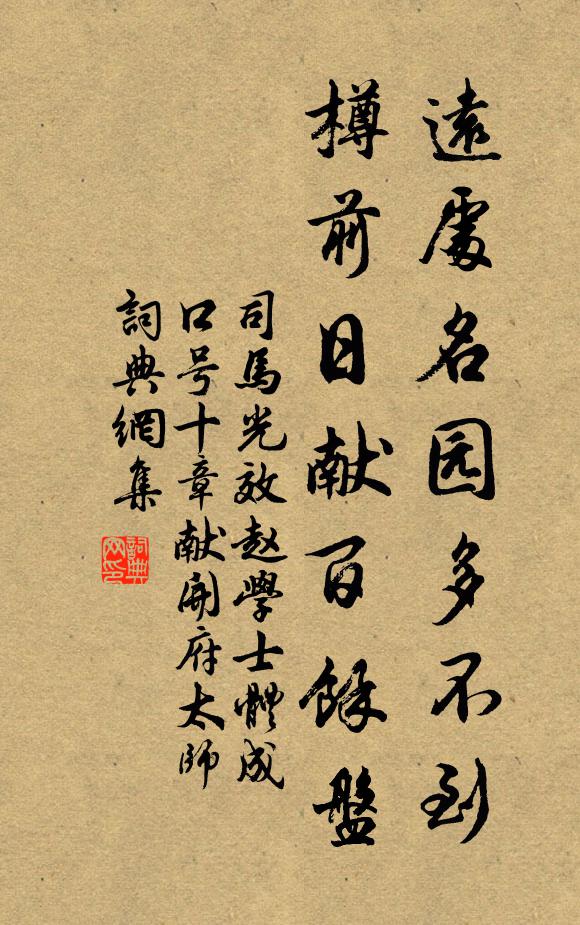 遠處名园多不到
樽前日献百餘盤
司馬光效赵學士體成
口号十章献開府太師
詞典網集
詞典网印